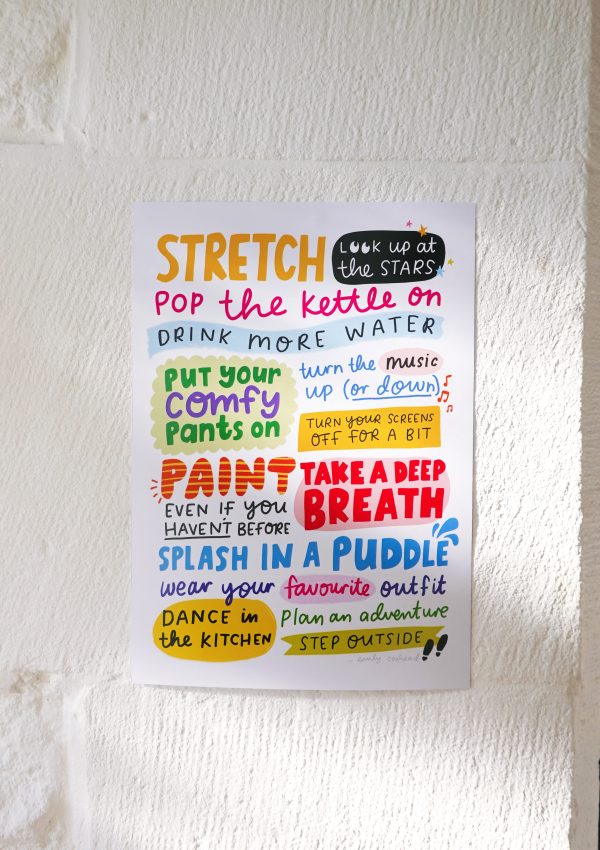 STRETCH
LOOK up at
the STARS
POP the kettle on
DRINK MORE WATER
PUT YOUR
comfy
Pants on
turn the music
up (or down)
TURN YOUR SCREENS
OFF FOR A BIT
PAINT
EVEN IF YOU
HAVEN'T BEFORE
TAKE A DEEP
BREATH
SPLASH IN A PUDDLE
wear your favourite outfit
DANCE in
the KITCHEN
Plan an adventure
STEP OUTSIDE
- emily coxhead